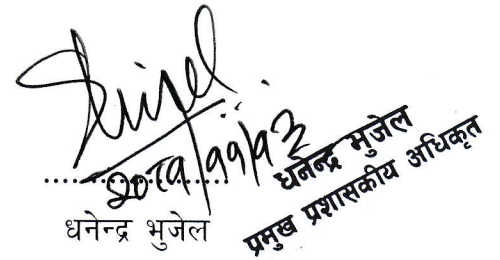 २०८१/११/१३
..............................
धनेन्द्र भुजेल
धनेन्द्र भुजेल
प्रमुख प्रशासकीय अधिकृत